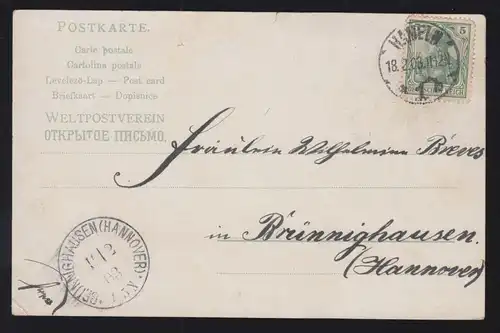 POSTKARTE.
Carte postale
Cartolina postale
Levelező-Lap — Post card
Briefkaart — Dopisnice
WELTPOSTVEREIN
ОТКРЫТОЕ ПИСЬМО.
5
HAMELN
18.2.03.
1
Fräulein Wilhelmine
in Brünnighausen
(Hannover)
BRÜNNIGHAUSEN (HANNOVER)